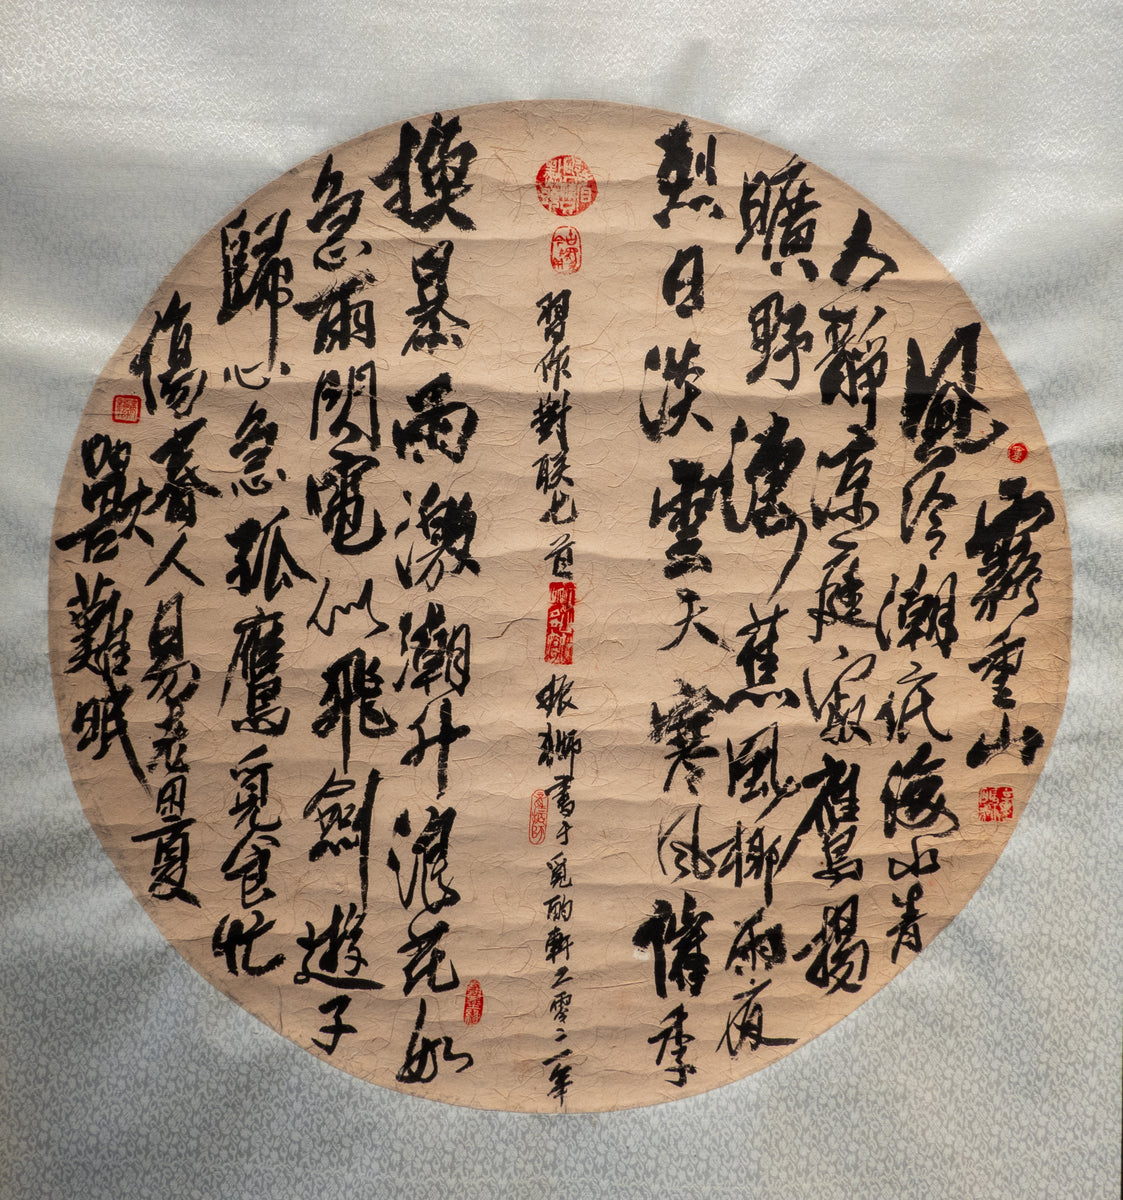 霧重山
風冷潮低海水青
人靜凉庭寂鷹揚
曠野蕉風椰雨夜
烈日淡雲天寒風季
習作對联七首 振獅書于覓酌軒二零二一年
換暴雨激潮升浪花如
急雨閃電似飛劍遊子
歸心急孤鷹覓食忙
傷春人易老困夏
獸難眠